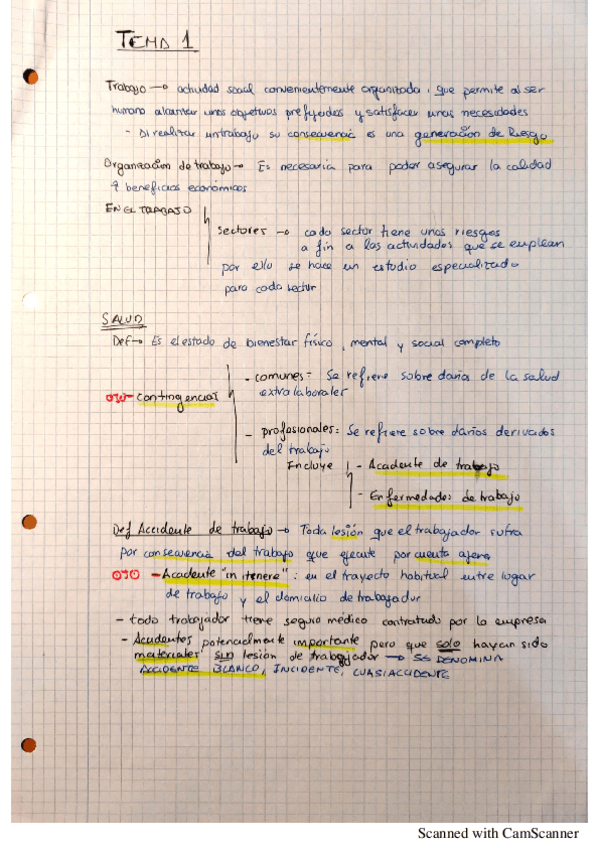 TEMA 1
Trabajo → actividad social convenientemente organizada, que permite al ser
humano alcanzar unos objetivos prefijados y satisfacer unas necesidades
- Al realizar un trabajo su consecuencia es una generación de Riesgo
Organización de trabajo → Es necesaria para poder asegurar la calidad
y beneficios económicos
EN EL TRABAJO
sectores → cada sector tiene unos riesgos
a fin a las actividades que se emplean
por ello se hace un estudio especializado
para cada sector
SALUD
Def → Es el estado de bienestar físico, mental y social completo
- comunes: Se refiere sobre daños de la salud
extralaborales
OJO - Contingencias
- profesionales: Se refiere sobre daños derivados
del trabajo
Encluye - Accidente de trabajo
- Enfermedades de trabajo
Def Accidente de trabajo → Toda lesión que el trabajador sufra
por consecuencia del trabajo que ejecute por cuenta ajena
OJO - Accidente "in itenere": en el trayecto habitual entre lugar
de trabajo y el domicilio de trabajador
- todo trabajador tiene seguro médico contratado por la empresa
- Accidentes potencialmente importante pero que solo hayan sido
materiales sin lesión de trabajador → SE DENOMINA
ACCIDENTE BLANCO, INCIDENTE, CUASIACCIDENTE
Scanned with CamScanner